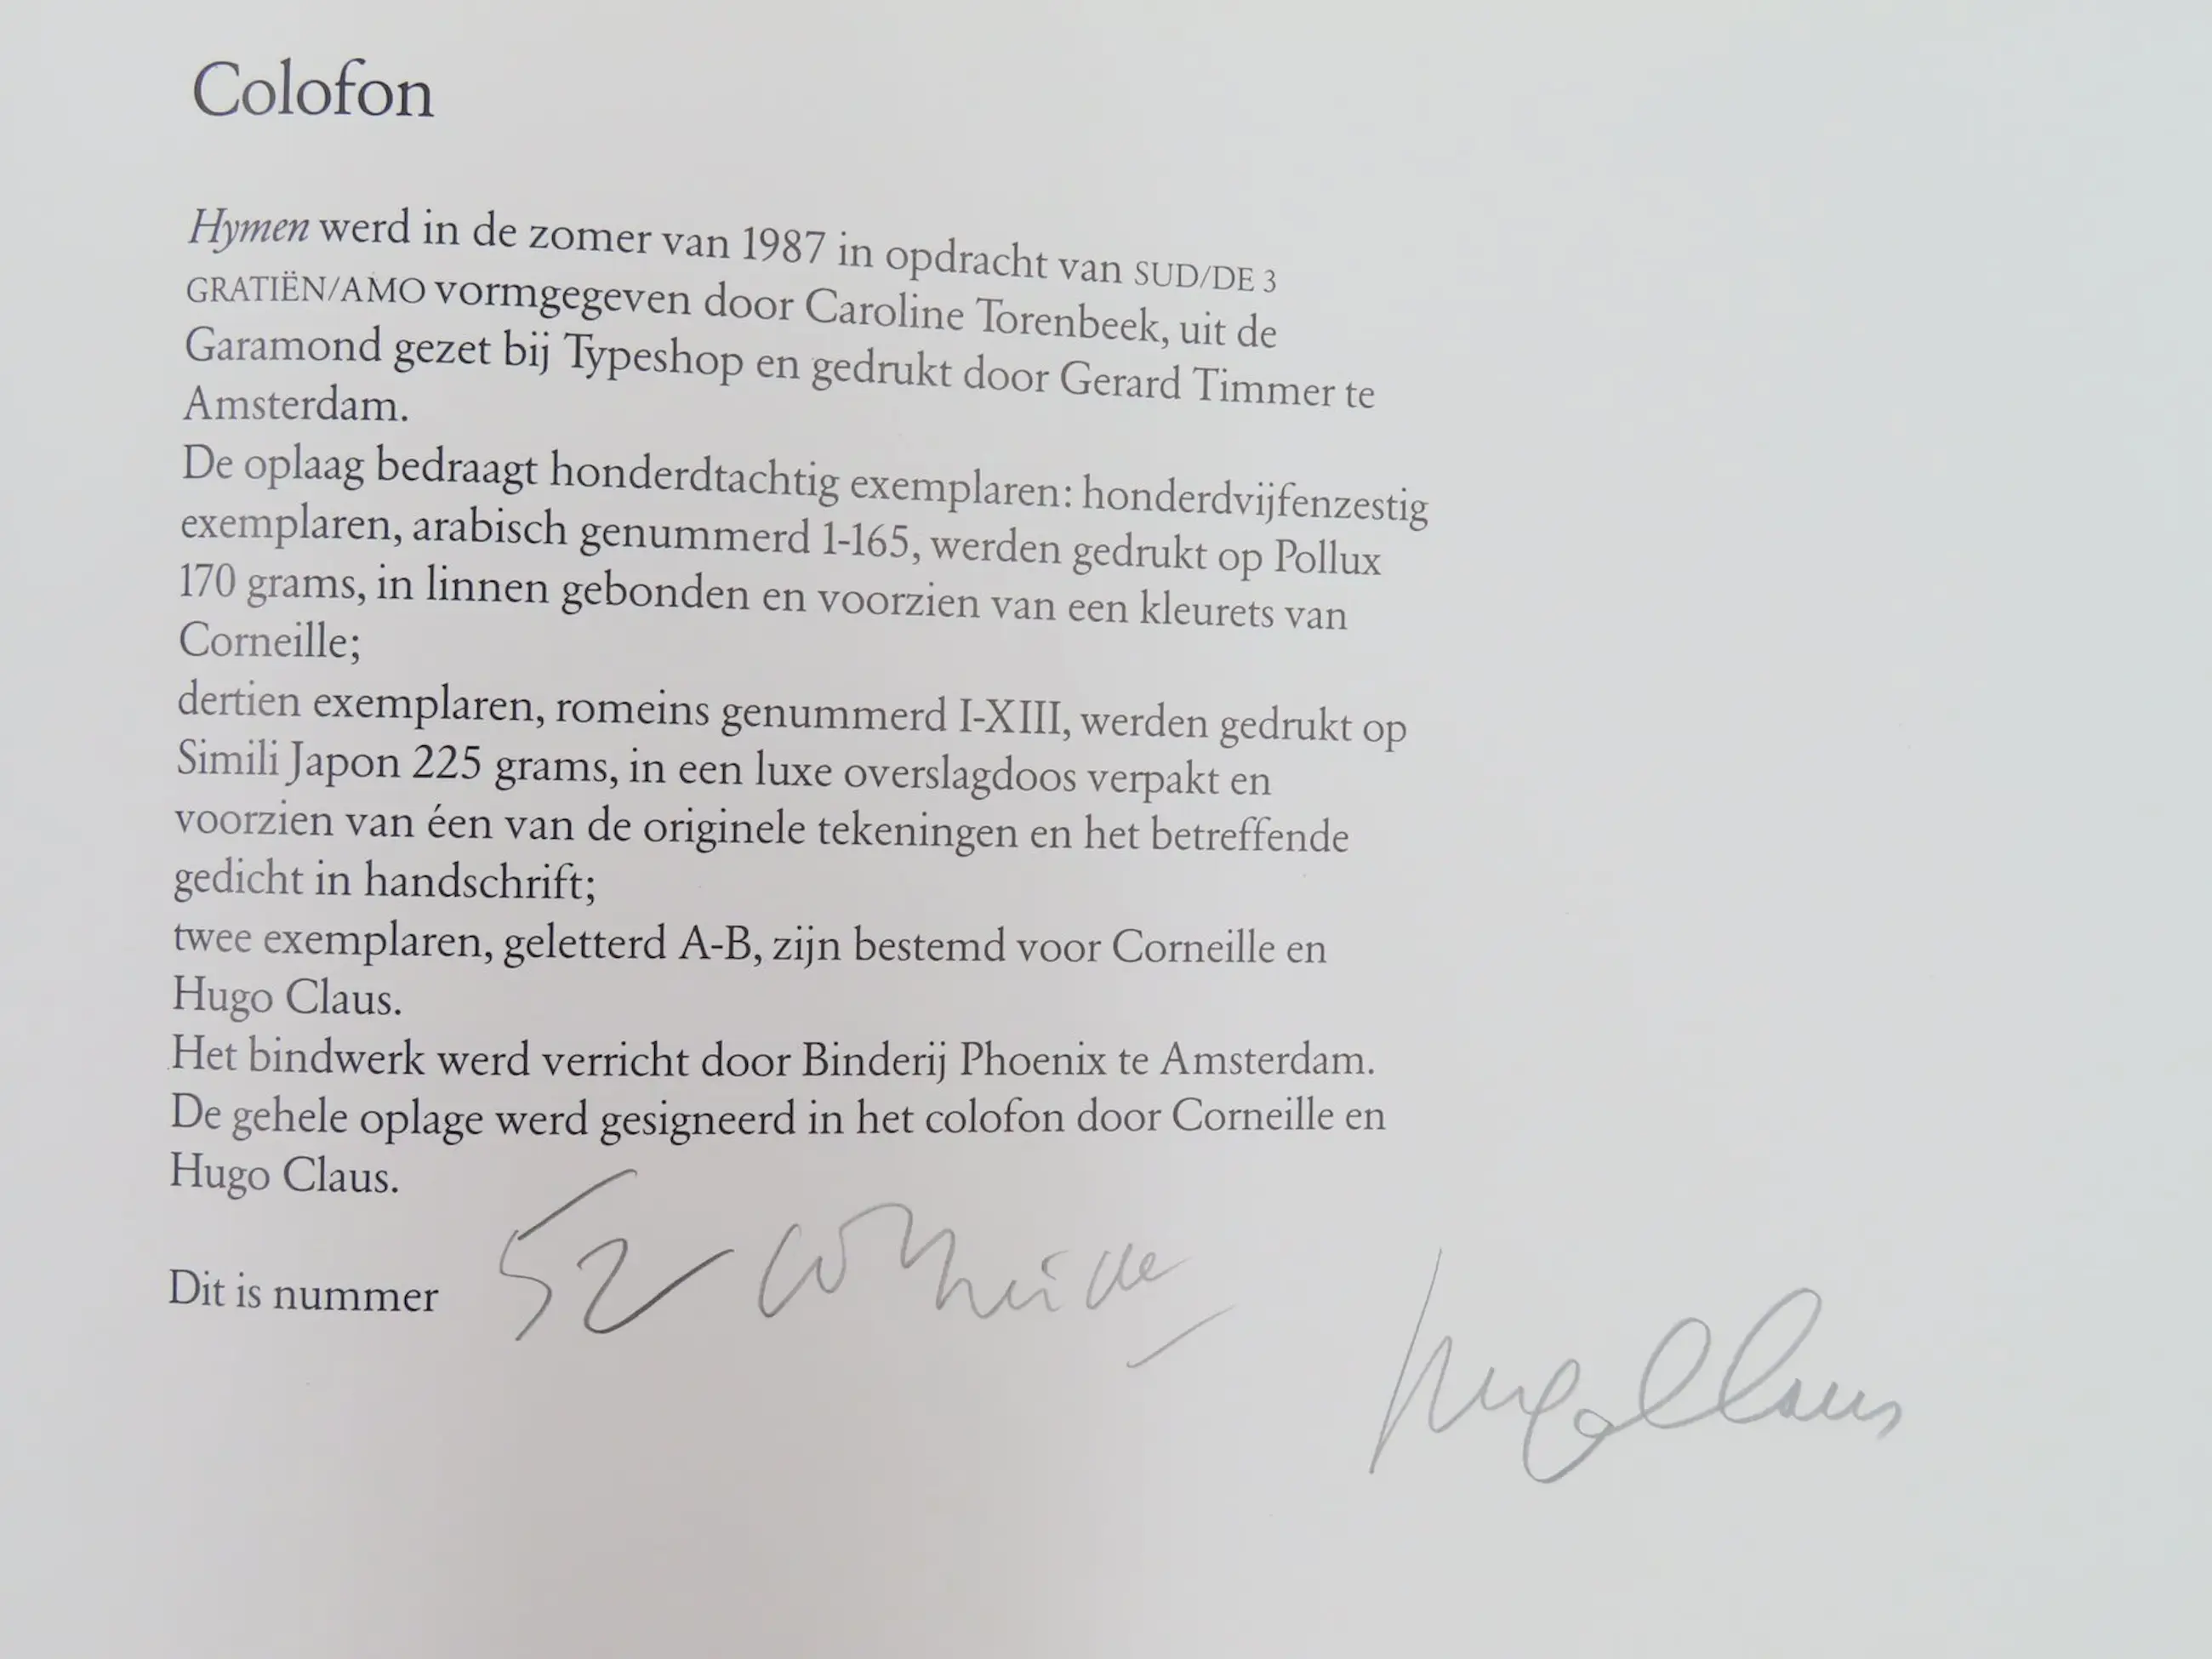 Colofon
Hymen werd in de zomer van 1987 in opdracht van SUD/DE 3
GRATIËN/AMO vormgegeven door Caroline Torenbeek, uit de
Garamond gezet bij Typeshop en gedrukt door Gerard Timmer te
Amsterdam.
De oplaag bedraagt honderdtachtig exemplaren: honderdvijfenzestig
exemplaren, arabisch genummerd 1-165, werden gedrukt op Pollux
170 grams, in linnen gebonden en voorzien van een kleurets van
Corneille;
dertien exemplaren, romeins genummerd I-XIII, werden gedrukt op
Simili Japon 225 grams, in een luxe overslagdoos verpakt en
voorzien van éen van de originele tekeningen en het betreffende
gedicht in handschrift;
twee exemplaren, geletterd A-B, zijn bestemd voor Corneille en
Hugo Claus.
Het bindwerk werd verricht door Binderij Phoenix te Amsterdam.
De gehele oplage werd gesigneerd in het colofon door Corneille en
Hugo Claus.
Dit is nummer 52 Corneille
Hugo Claus